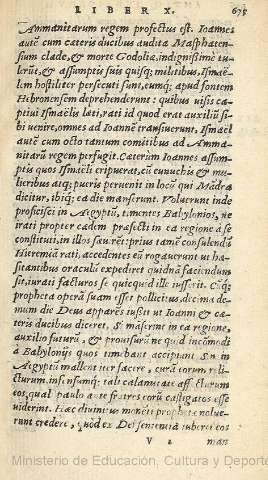 LIBER X. 675
Ammanitarum regem profectus est. Ioannes
autē cum cæteris ducibus audita Masphaten-
sium clade, & morte Godolia, indignissime tu-
lerūt, & assumptis suis quisq; militibus, Ismaë-
lem hostiliter persecuti sunt, eumq; apud fontem
Hebronensem deprehenderunt: quibus visis ca-
ptiui Ismaëlis læti, rati id quod erat auxiliū si-
bi venire, omnes ad Ioannē transiuerunt. Ismaël
autē cum octo tantum comitibus ad Amma-
nitarū regem perfugit. Cæterùm Ioannes assum-
ptis quos Ismaëli eripuerat, cū eunuchis & mu-
lieribus atq; pueris peruenit in locū qui Mādra
dicitur, ibiq; ea die manserunt. Voluerunt inde
proficisci in Aegyptū, timentes Babylonios, ne
irati propter cædem præfecti in ea regione à se
constituti, in illos sæuirēt: prius tamē consulendū
Hieremiā rati, accedentes eū rogauerunt vt hæ-
sitantibus oraculū expediret quidnā faciendum
sit, iurati facturos se quicquid ille iusserit. Cūq;
propheta operā suam esset pollicitus decima de-
mum die Deus apparēs iussit vt Ioanni & cæ-
teris ducibus diceret, Si māserint in ea regione,
auxilio futurū, & prouisurū ne quid incōmodi
à Babylonijs quos timebant accipiant. Sin in
Aegyptū mallent iter facere,
eos, qual paulo ante fratres eorū castigatos esse
viderint. Hæc diuinitus moneti prophetæ nolue-
runt credere, quod ex Dei sententia iuberet eos
V 2 man
Ministerio de Educación, Cultura y Deporte